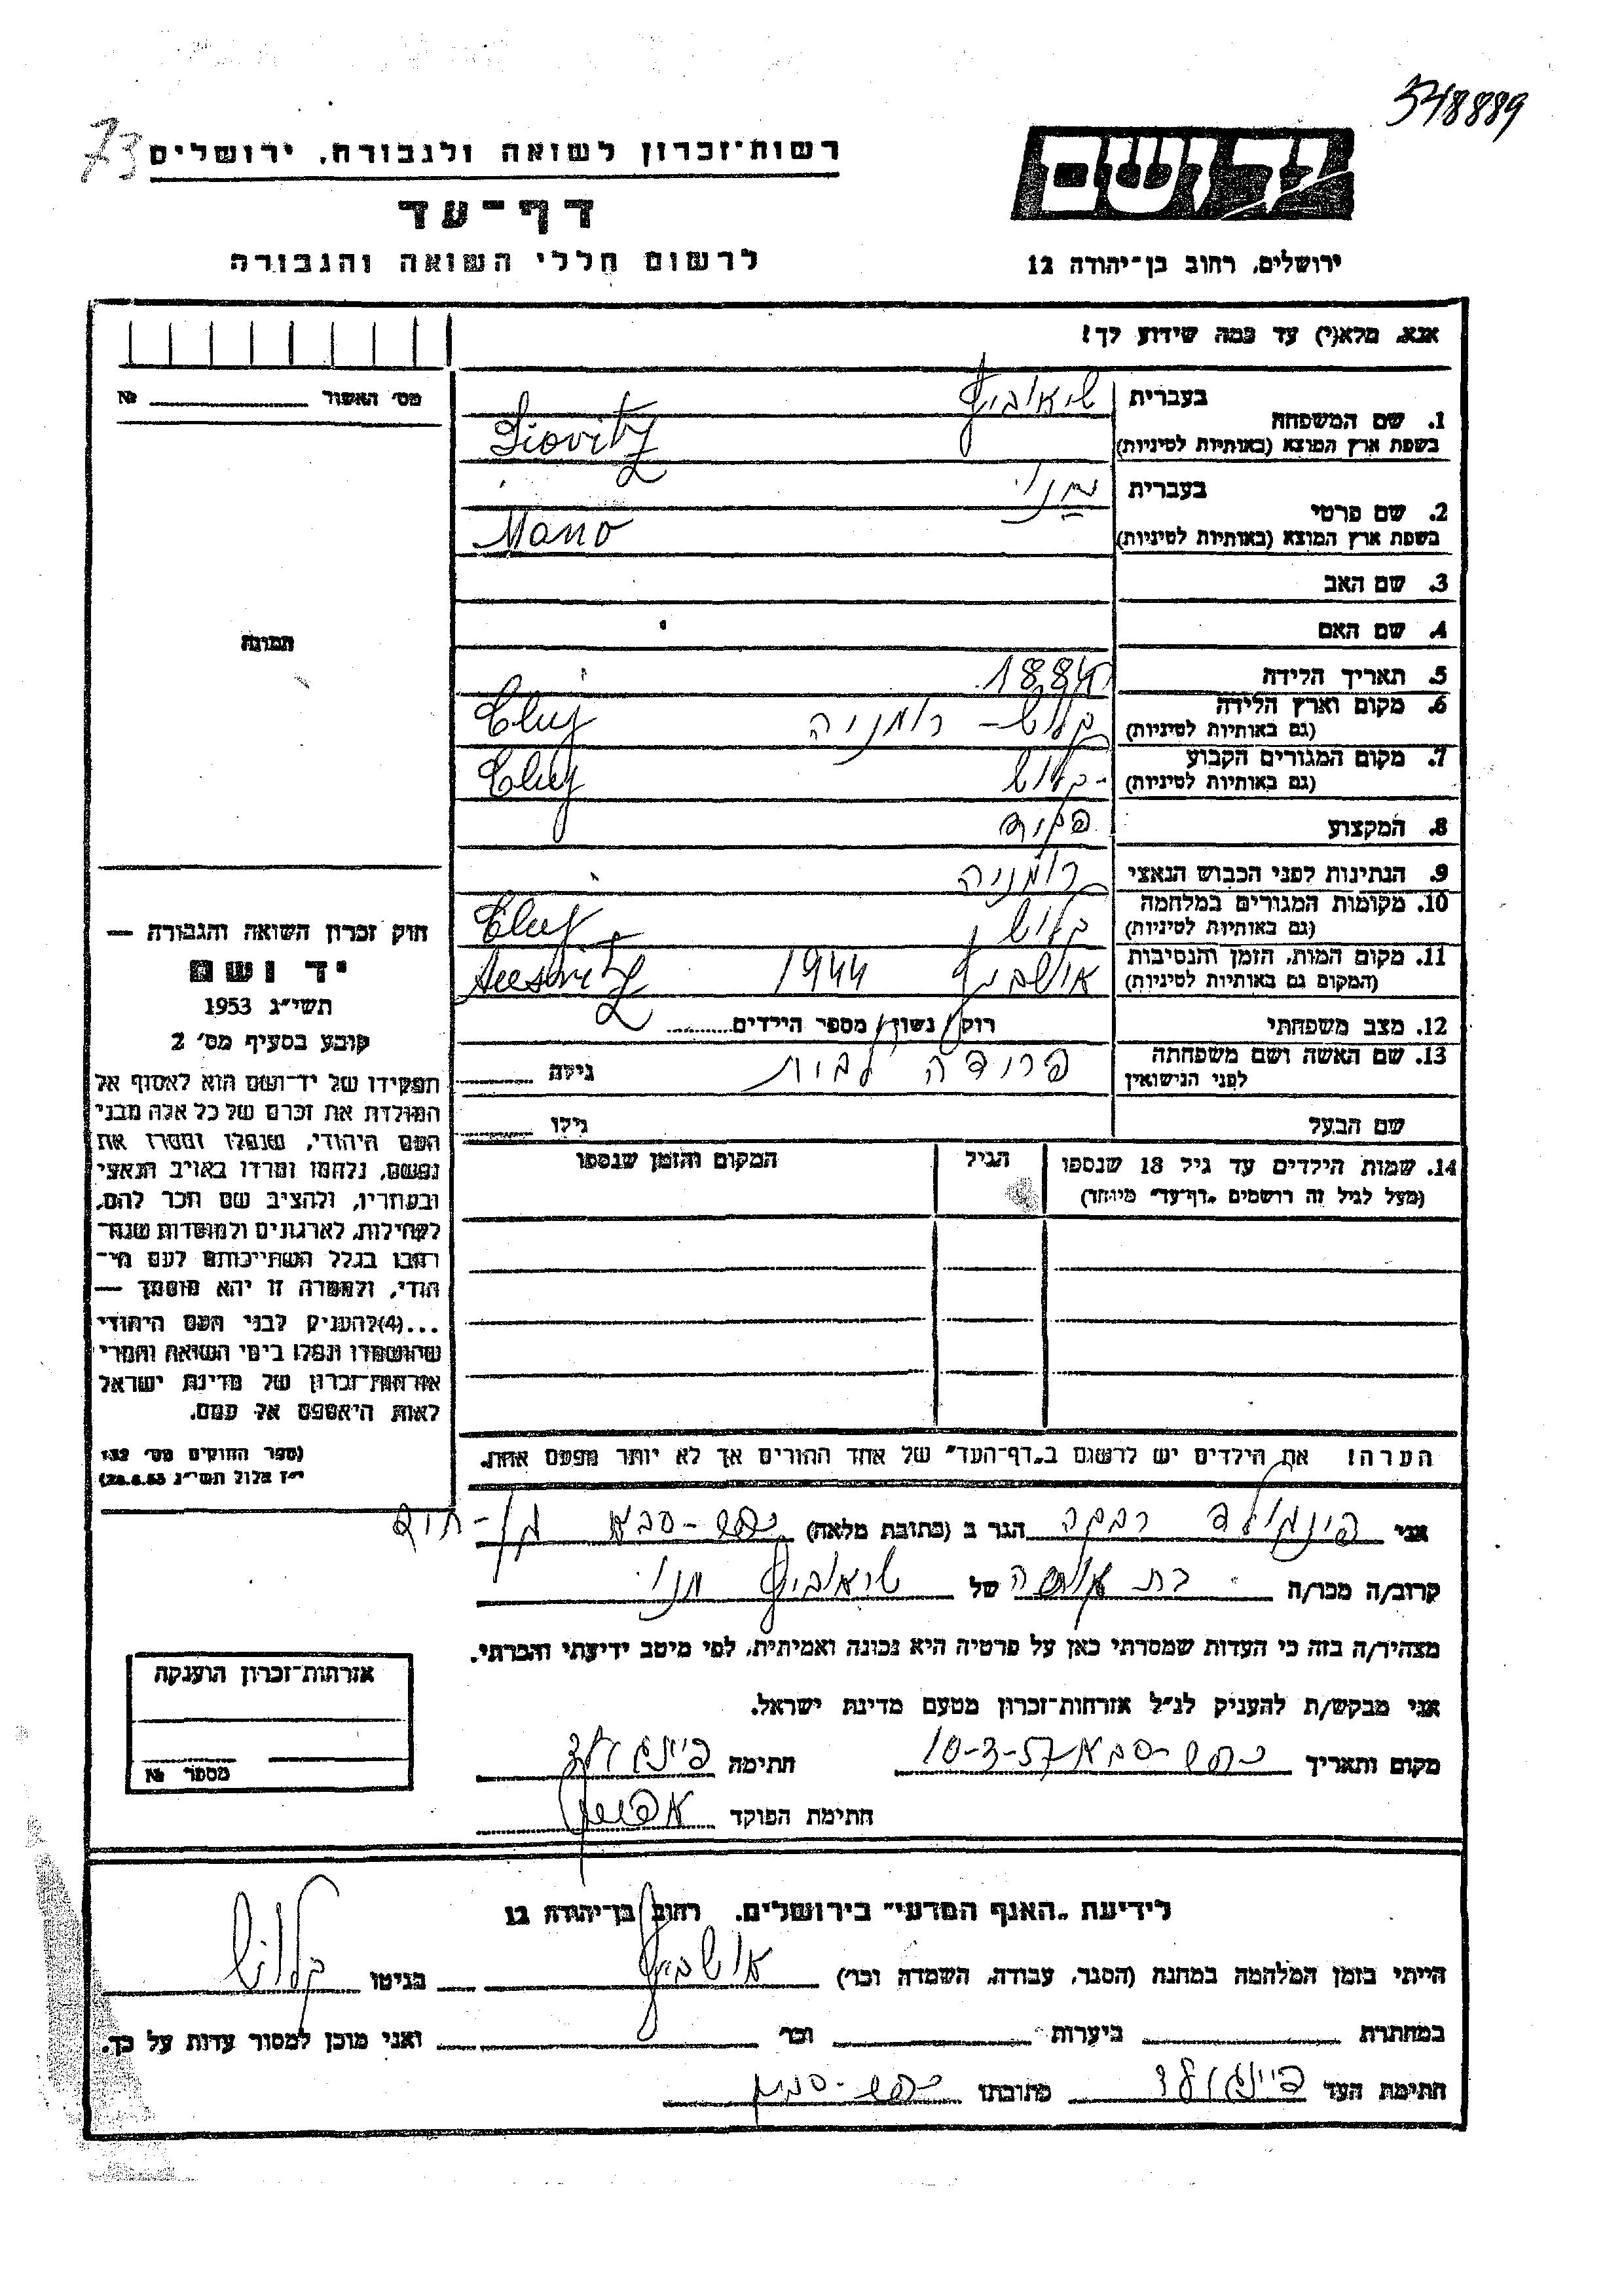 548889
73
רשות־זכרון לשואה ולגבורה, ירושלים
דף־עד
לרשום חללי השואה והגבורה
יד ושם
ירושלים, רחוב בן־יהודה 12
אנא, מלא(י) עד כמה שידוע לך!
מס׳ האשור № 
תמונה
בעברית
1. שם המשפחה
בשפת ארץ המוצא (באותיות לטיניות)
בעברית מנו
2. שם פרטי
בשפת ארץ המוצא (באותיות לטיניות) Mano
3. שם האב
4. שם האם
5. תאריך הלידה 1884
6. מקום וארץ הלידה קלוש - רומניה Cluj
(גם באותיות לטיניות)
7. מקום המגורים הקבוע קלוש Cluj
(גם באותיות לטיניות)
8. המקצוע פקיד
9. הנתינות לפני הכבוש הנאצי רומניה
10. מקומות המגורים במלחמה קלוש Cluj
(גם באותיות לטיניות)
11. מקום המות, הזמן והנסיבות אושביץ 1944
(המקום גם באותיות לטיניות)
12. מצב משפחתי רוק/ נשוי/ מספר הילדים
13. שם האשה ושם משפחתה
לפני הנישואין גילה
שם הבעל גילו
14. שמות הילדים עד גיל 18 שנספו הגיל המקום והזמן שנספו
(מעל לגיל זה רושמים „דף־עד״ מיוחד)
הערה! את הילדים יש לרשום ב„דף־העד״ של אחד ההורים אך לא יותר מפעם אחת.
חוק זכרון השואה והגבורה —
יד ושם
תשי״ג 1953
קובע בסעיף מס׳ 2
תפקידו של יד־ושם הוא לאסוף אל
המולדת את זכרם של כל אלה מבני
העם היהודי, שנפלו ומסרו את
נפשם, נלחמו ומרדו באויב הנאצי
ובעוזריו, ולהציב שם וזכר להם,
לקהילות, לארגונים ולמוסדות שנח־
רבו בגלל השתייכותם לעם הי־
הודי, ולמטרה זו יהא מוסמך —
...(4)להעניק לבני העם היהודי
שהושמדו ונפלו בימי השואה והמרי
אזרחות־זכרון של מדינת ישראל
לאות היאספם אל עמם.
(ספר החוקים מס׳ 132
י״ז אלול תשי״ג 28.8.53)
אני רבקה הגר ב (כתובת מלאה) כפר-סבא
קרוב/ה מכר/ה של מנו
מצהיר/ה בזה כי העדות שמסרתי כאן על פרטיה היא נכונה ואמיתית, לפי מיטב ידיעתי והכרתי.
אני מבקש/ת להעניק לנ״ל אזרחות־זכרון מטעם מדינת ישראל.
מקום ותאריך כפר-סבא 10-3-57 חתימה
חתימת הפוקד
אזרחות־זכרון הוענקה
מספר №
לידיעת „האגף המדעי״ בירושלים, רחוב בן־יהודה 12
הייתי בזמן המלחמה במחנה (הסגר, עבודה, השמדה וכר׳) אושביץ בגיטו קלוש
במחתרת ביערות וכר׳ ואני מוכן למסור עדות על כך.
חתימת העד כתובתו כפר-סבא